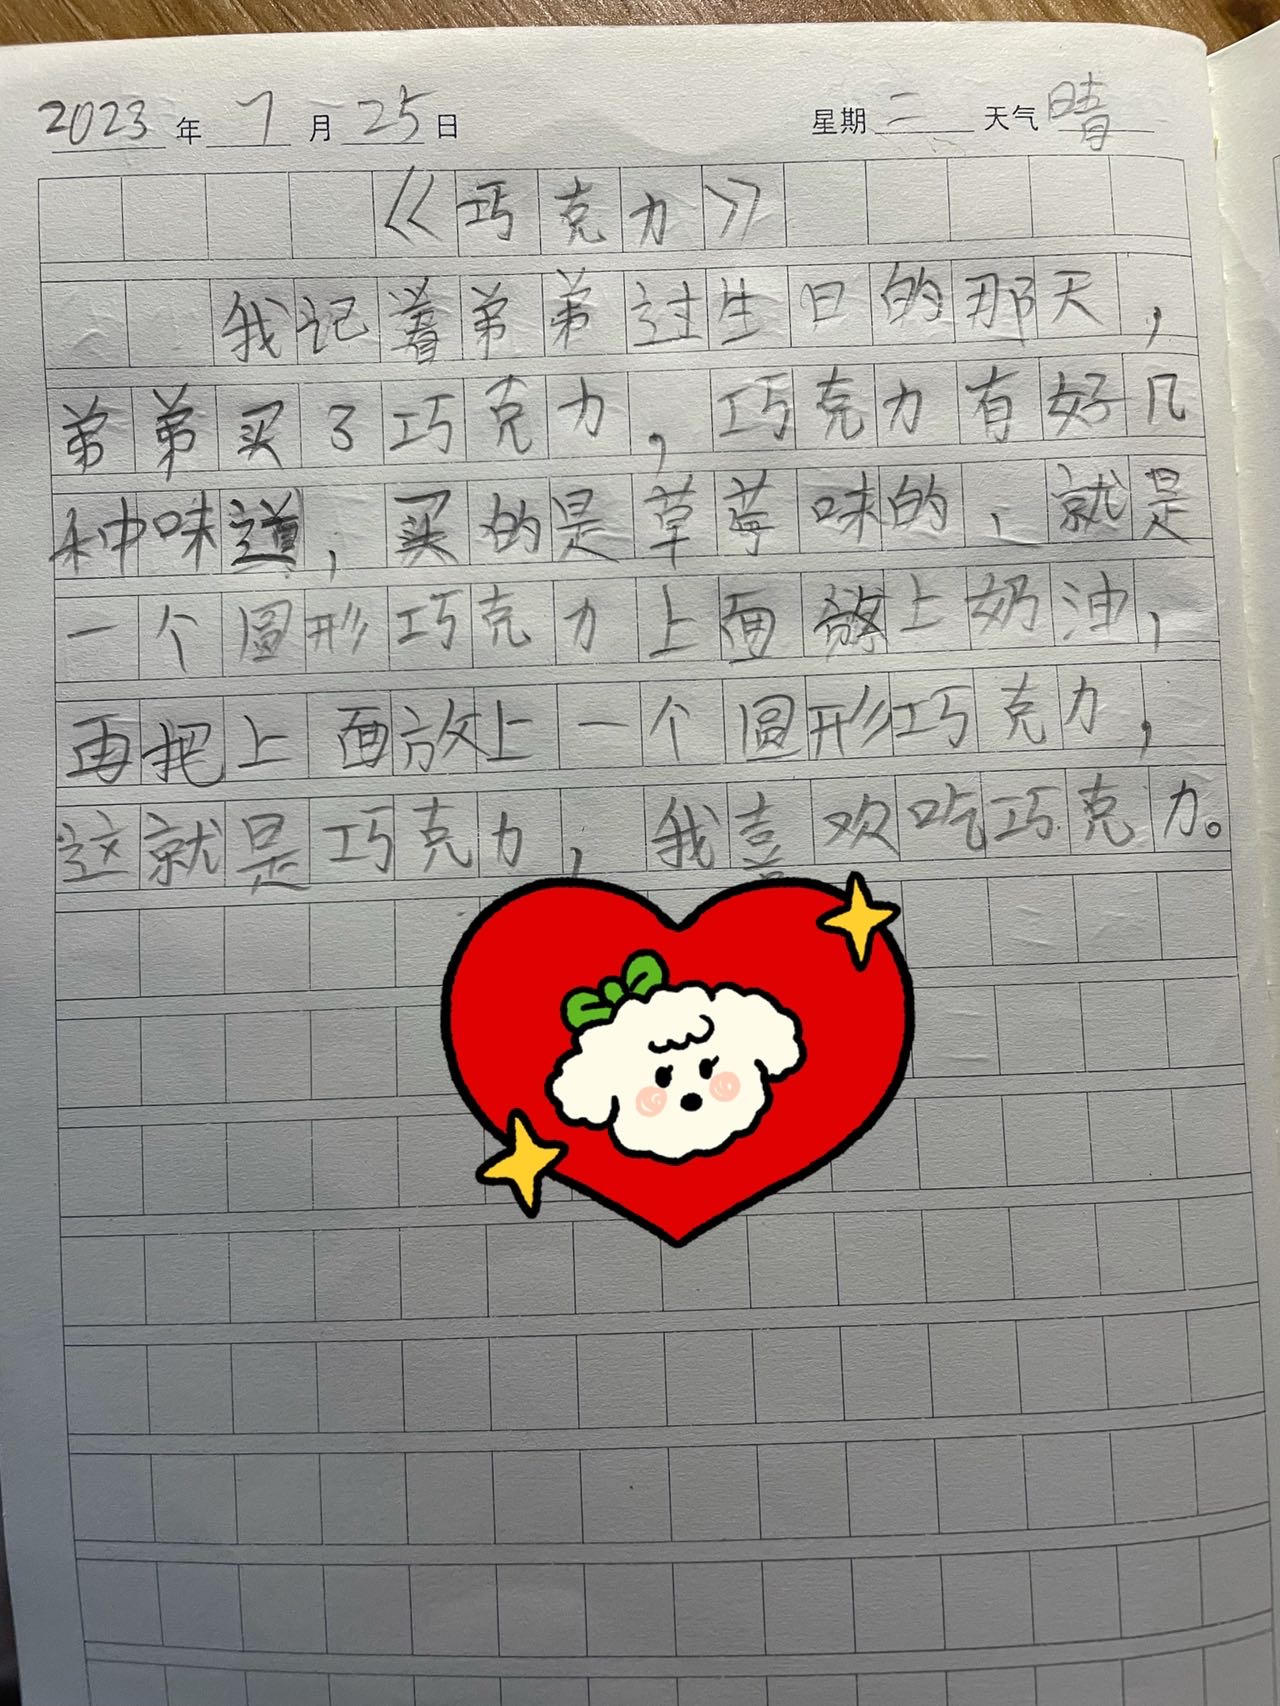 2023年7月25日 星期二 天气晴
《巧克力》
我记着弟弟过生日的那天，
弟弟买了巧克力，巧克力有好几
种味道，买的是草莓味的、就是
一个圆形巧克力上面放上奶油，
再把上面放上一个圆形巧克力，
这就是巧克力，我喜欢吃巧克力。